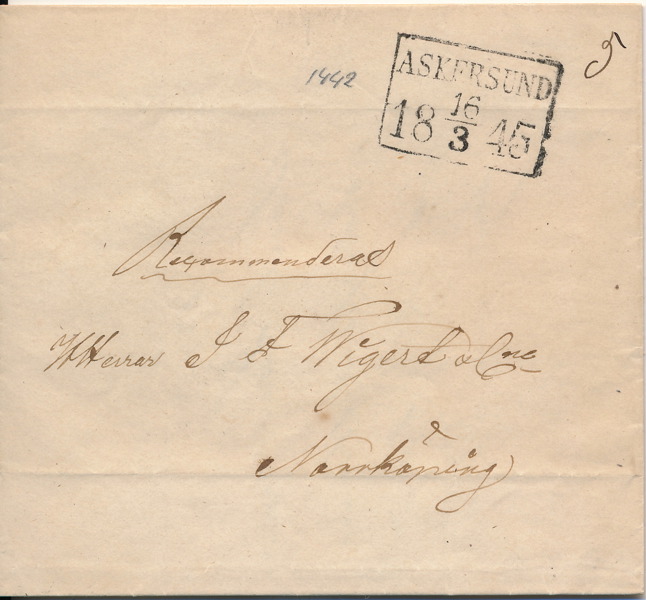 1442
ASKERSUND
18 16/3 45
Recommenderas
HHerrar J F Wigert & Cne
Norrköping